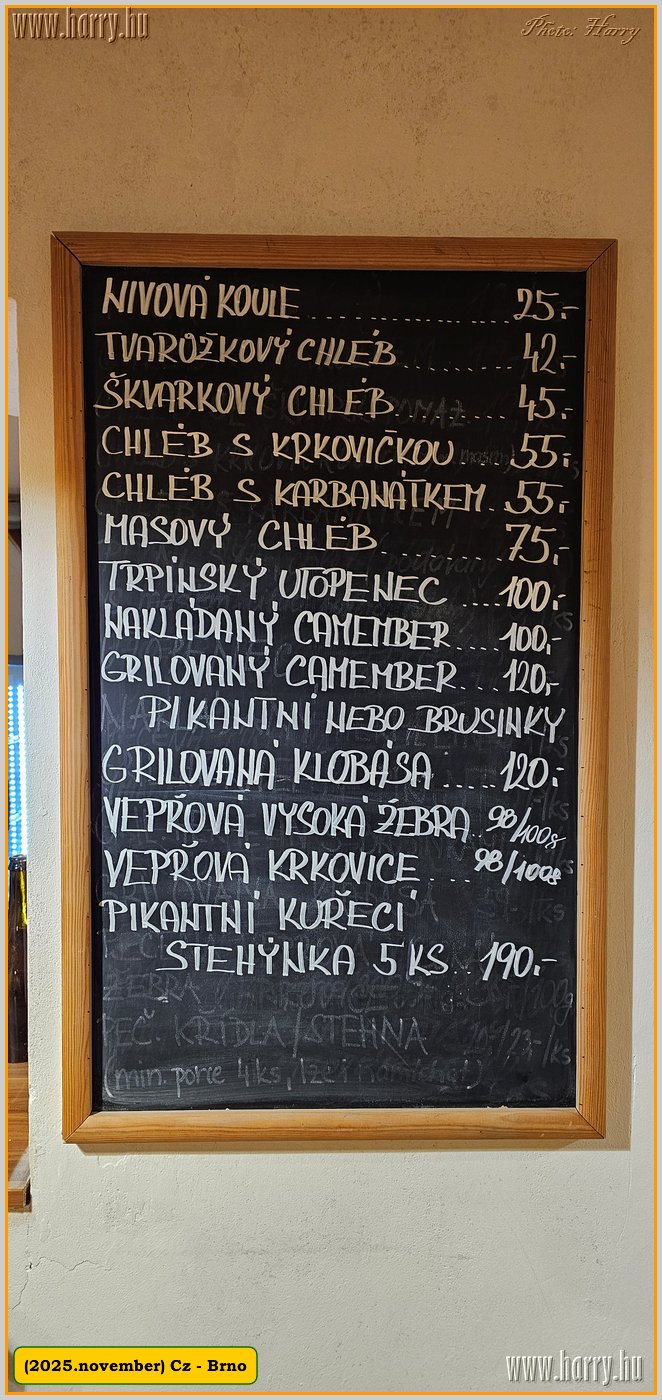 www.harry.hu
Photo: Harry
NIVOVÁ KOULE ............... 25.-
TVAROŽKOVÝ CHLÉB .......... 42.-
ŠKVARKOVÝ CHLÉB ......... 45.-
CHLÉB S KRKOVIČKOU .... 55.-
CHLÉB S KARBANÁTKEM .. 55.-
MASOVÝ CHLÉB ............ 75.-
TRPÍNSKÝ UTOPENEC .... 100.-
NAKLÁDANÝ CAMEMBER .... 100.-
GRILOVANÝ CAMEMBER .... 120.-
PIKANTNÍ NEBO BRUSINKY
GRILOVANÁ KLOBÁSA ..... 120.-
VEPŘOVÁ VYSOKÁ ŽEBRA .. 98/100g
VEPŘOVÁ KRKOVICE .... 98/100g
PIKANTNÍ KUŘECÍ
STEHÝNKA 5 KS .. 190.-
ŽEBRA
PEČ. KŘÍDLA/STEHNA 23,-/ks
(min. porce 4ks,
(2025.november) Cz - Brno
www.harry.hu